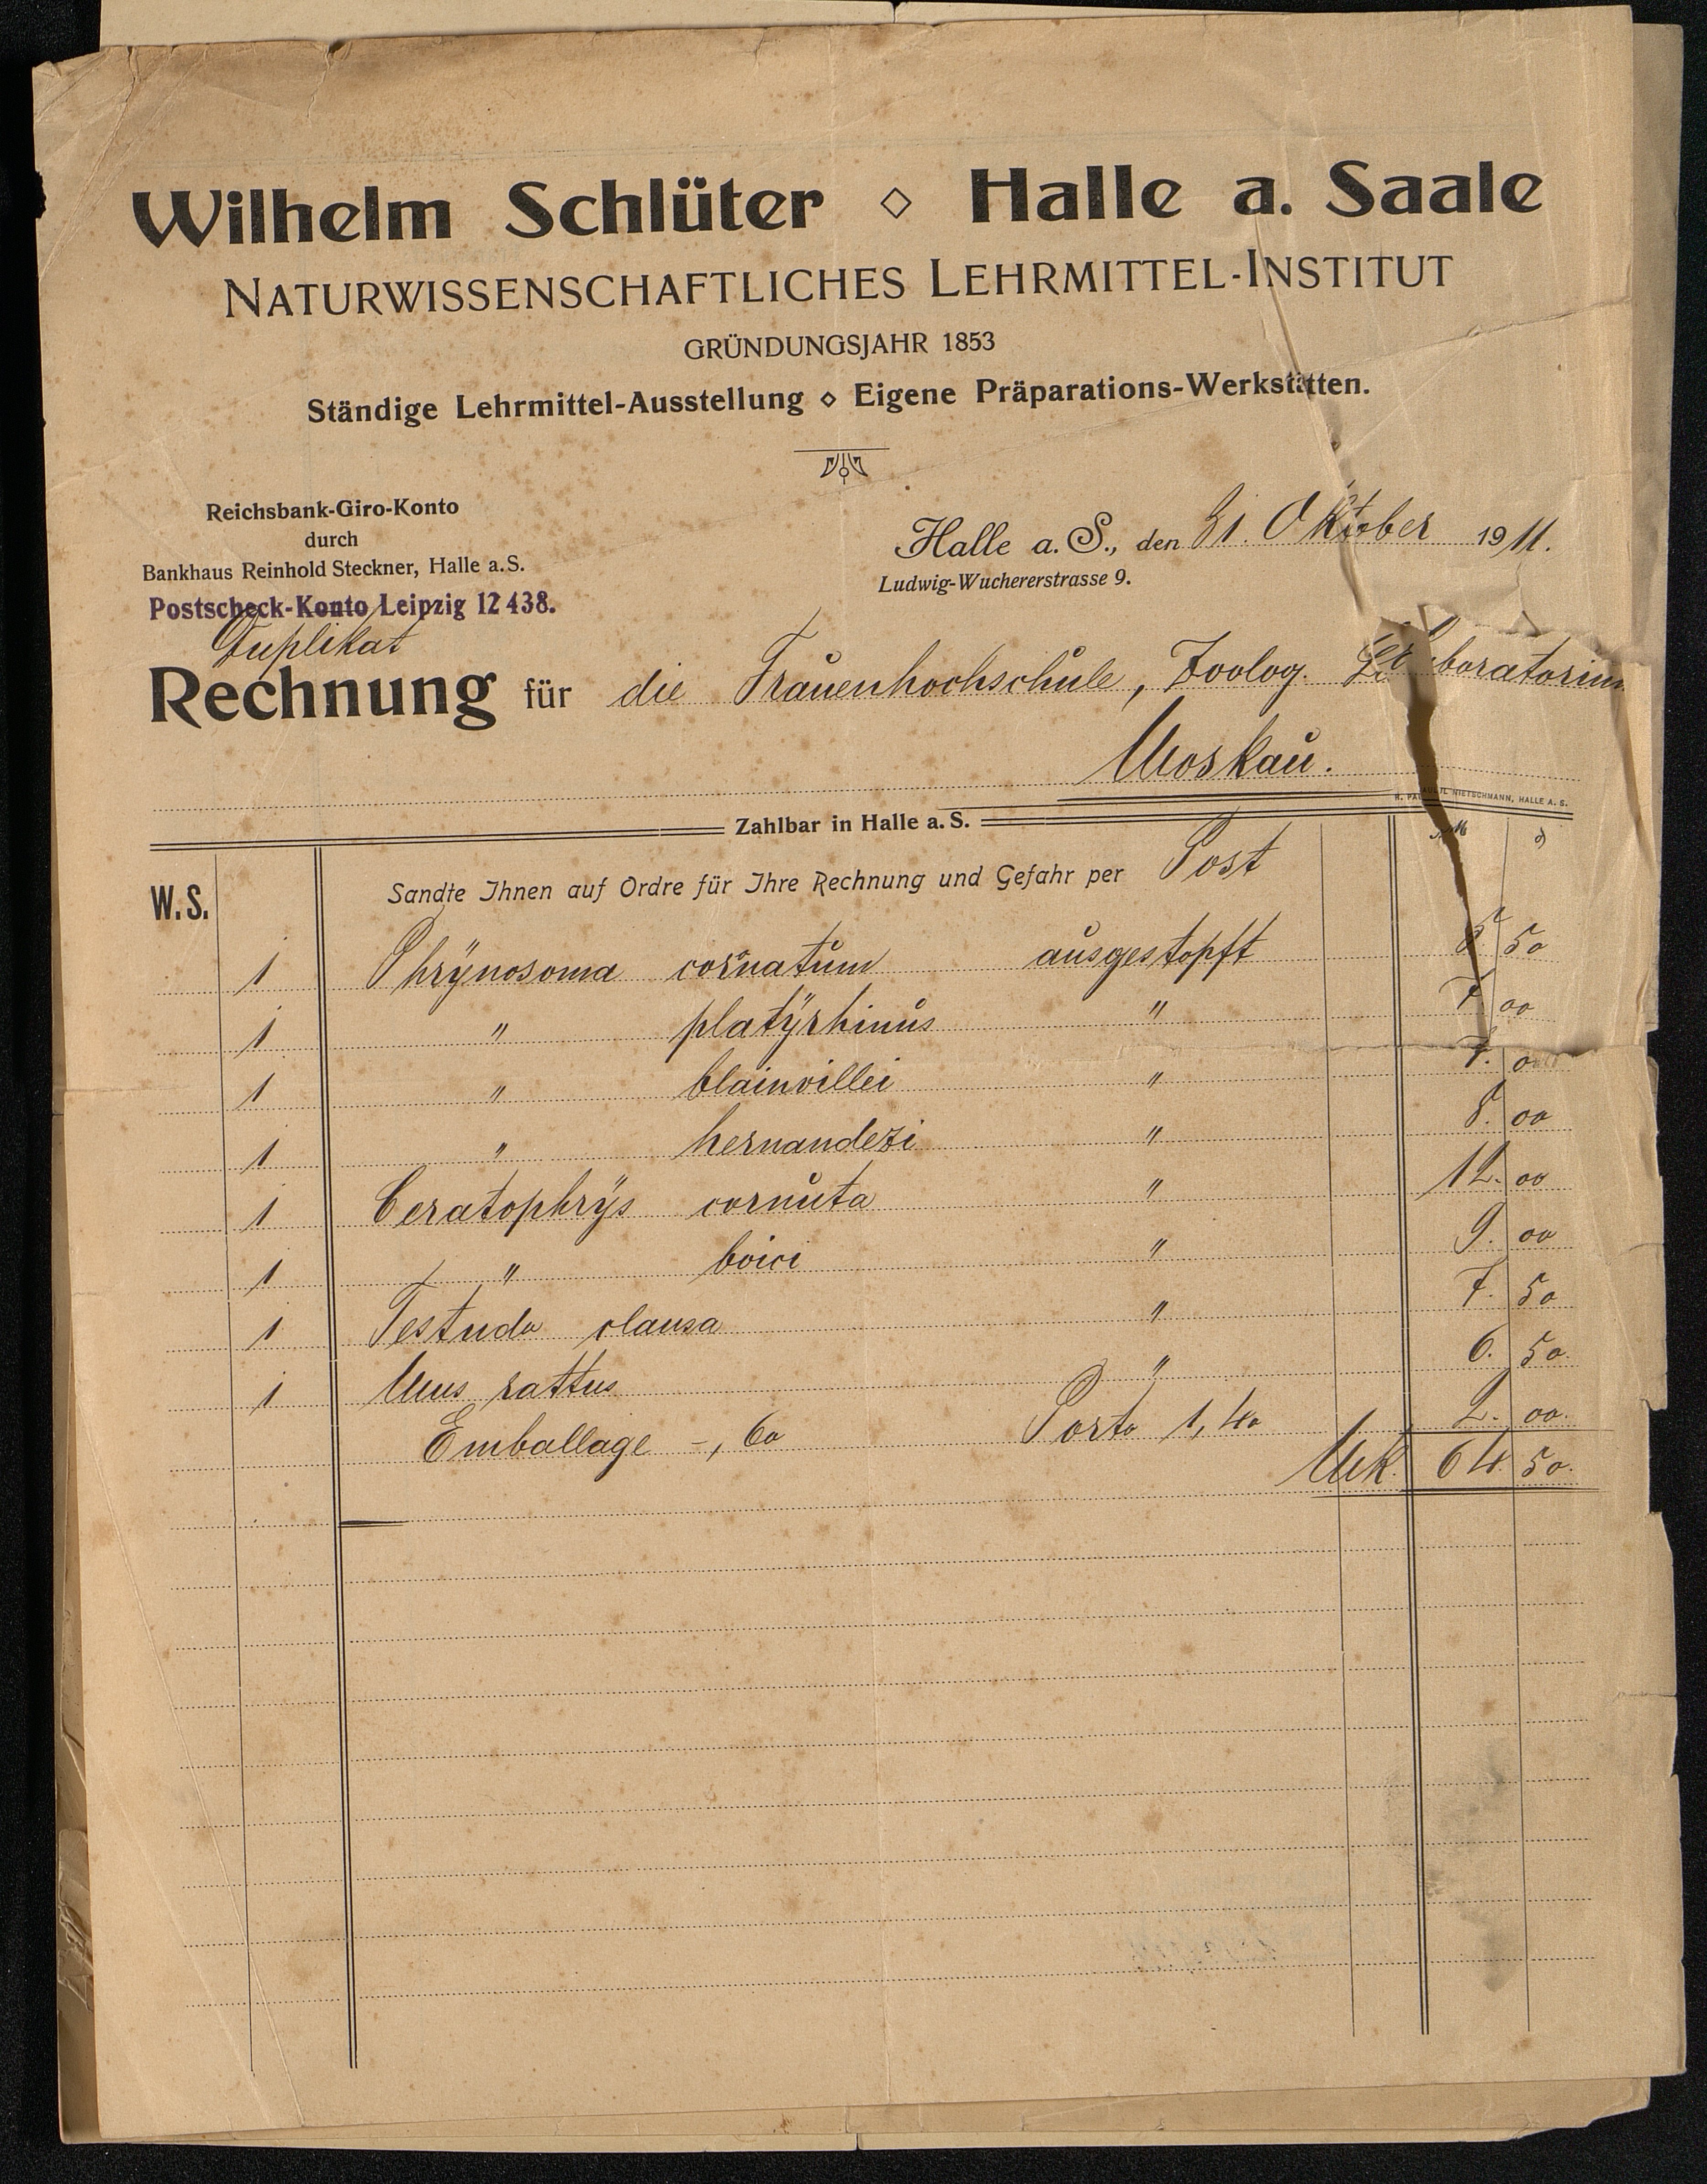 Wilhelm Schlüter ◇ Halle a. Saale
NATURWISSENSCHAFTLICHES LEHRMITTEL-INSTITUT
GRÜNDUNGSJAHR 1853
Ständige Lehrmittel-Ausstellung ◇ Eigene Präparations-Werkstätten.
Reichsbank-Giro-Konto
durch
Bankhaus Reinhold Steckner, Halle a.S.
Postscheck-Konto Leipzig 12438.
Halle a. S., den 31. Oktober 1911.
Ludwig-Wuchererstrasse 9.
Duplikat
Rechnung für die Frauenhochschule, Zoolog. Laboratorium
Moskau.
NIETSCHMANN, HALLE A. S.
Zahlbar in Halle a. S.
W.S. Sandte Ihnen auf Ordre für Ihre Rechnung und Gefahr per Post
1 Phrynosoma cornatum ausgestopft 5. 50
1 " platyrhinus " 7. 00
1 " blainvillei " 7. 00
1 " hernandezi " 8. 00
1 Ceratophrys cornuta " 12. 00
1 " boici " 9. 00
1 Testudo clausa " 7. 50
1 Mus rattus " 6. 50.
Emballage -, 60 Porto 1, 40 2. 00.
Mk. 64. 50.